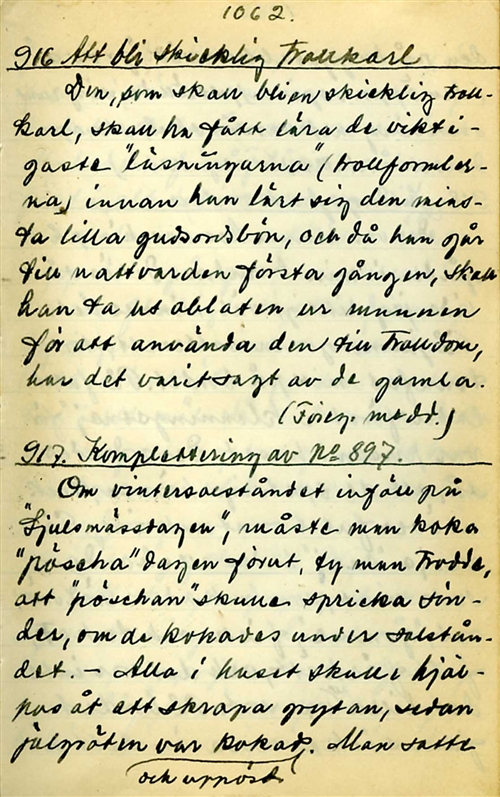 1062.
916 Att bli skicklig trollkarl
Den, som skall bli en skicklig troll-
karl, skall ha fått lära de vikti-
gaste "läsningarna" (trollformler-
na) innan han lärt sig den mins-
ta lilla gudsordsbön, och då han går
till nattvarden första gången, skall
han ta ut oblaten ur munnen
för att använda den till trolldom,
har det varit sagt av de gamla.
(Föreg. medd.)
917. Komplettering av No 897.
Om vintersolståndet inföll på
måste man koka
"pöscha" dagen förut, ty man trodde,
att "pöschan" skulle spricka sön-
der, om de kokades under solstån-
det. – Alla i huset skulle hjäl-
pas åt att skrapa grytan, sedan
julgröten var kokad. Man satte
och uppöst